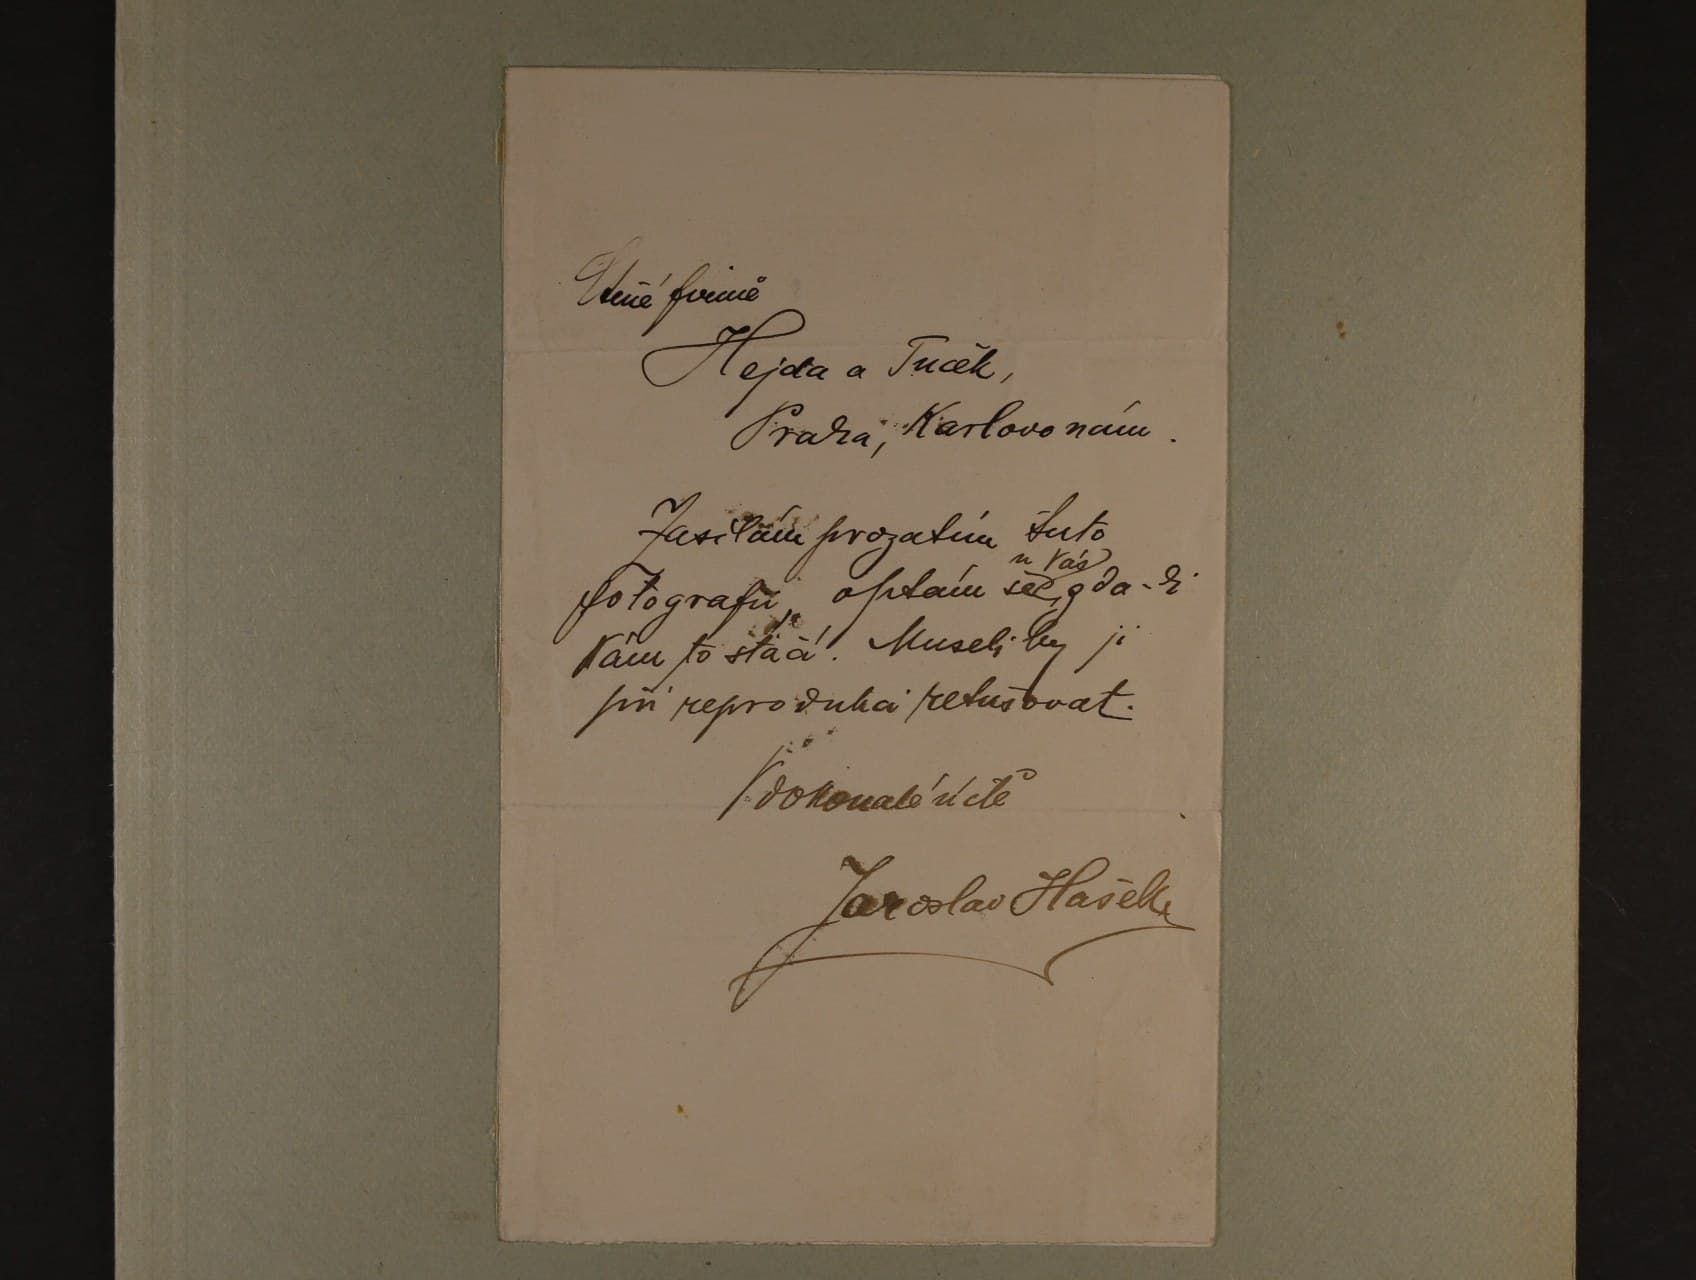 Ctěné firmě
Hejda a Tuček,
Praha, Karlovo nám.
Zasílám prozatím tuto
u Vás
fotografii, optám se, zda-li
Vám to stačí. Museli by ji
při reprodukci retušovat.
V dokonalé úctě
Jaroslav Hašek